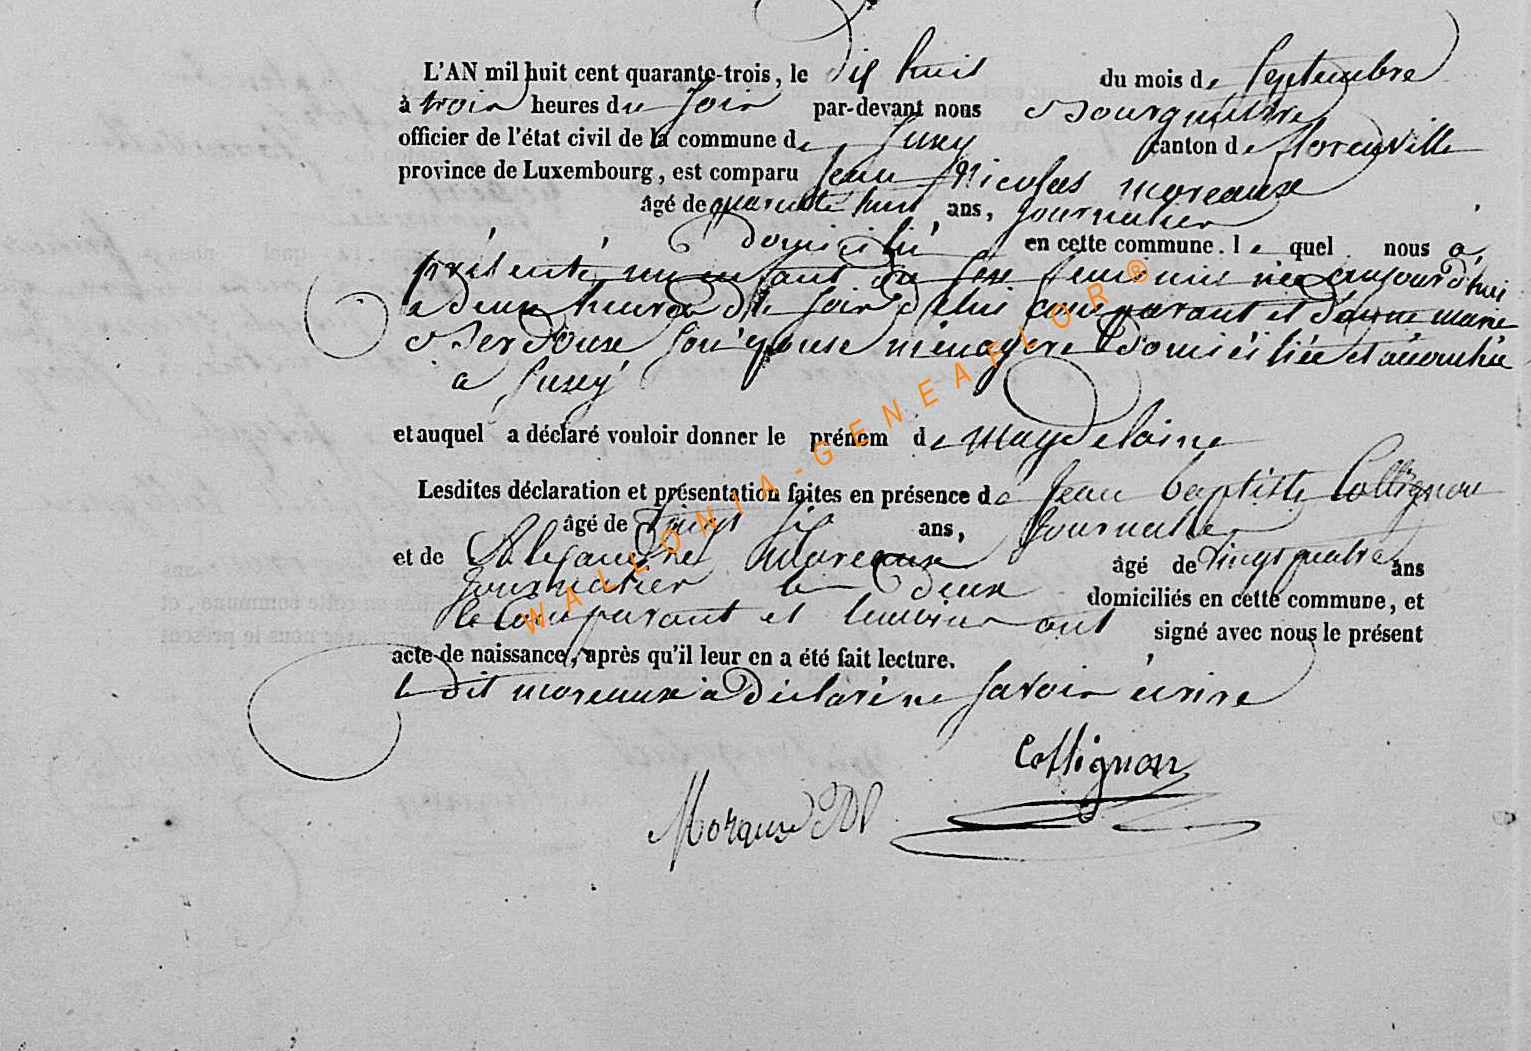 L'AN mil huit cent quarante-trois, le dix huit du mois de septembre
à trois heures du soir par-devant nous Bourguitre
officier de l'état civil de la commune de Jusey canton de florenville
province de Luxembourg, est comparu Jean Nicolas moreaux
âgé de quarante huit ans, journalier
domicilié en cette commune. le quel nous a
présenté un enfant du sexe feminin née aujourd'hui
a deux heures du soir de lui comparant et d'anne marie
son epouse ménagere domiciliée et accouchée
a Jusey
et auquel a déclaré vouloir donner le prénom de Magdelaine
Lesdites déclaration et présentation faites en présence de Jean baptiste Collignon
âgé de vingt six ans, journalier
et de Alexandre Moreaux âgé de vingt quatre ans
journalier les deux domiciliés en cette commune, et
le Comparant et temoins ont signé avec nous le présent
acte de naissance, après qu'il leur en a été fait lecture.
le dit moreaux a déclaré ne savoir écrire
Collignon
Moreaux
WALLONIA-GENEAFLOR®